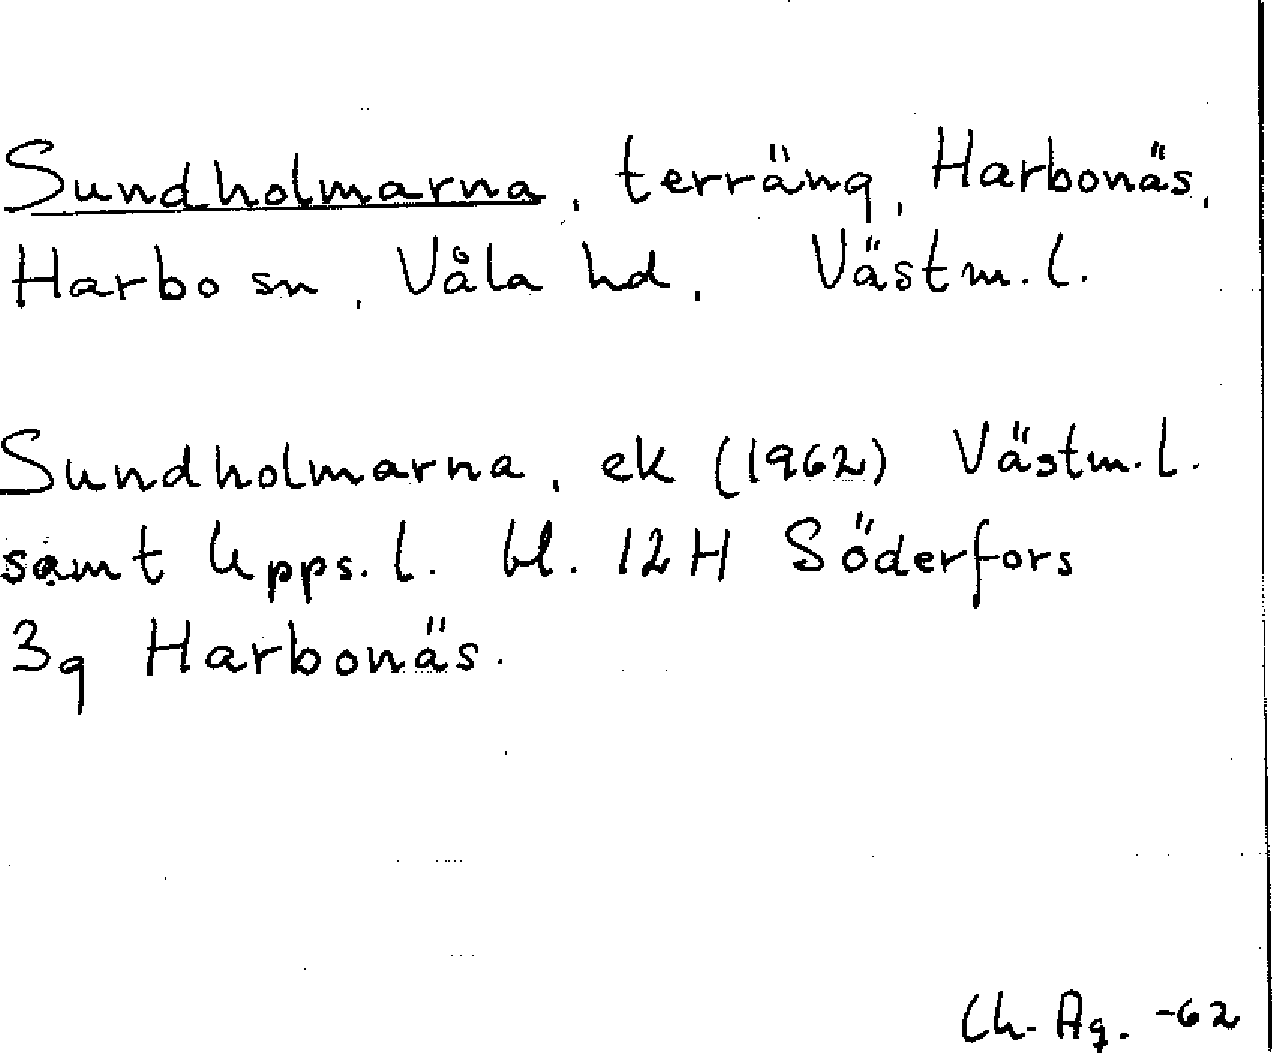 Sundholmarna, terräng, Harbonäs,
Harbo sn, Våla hd, Västm. l.
Sundholmarna, ek (1962) Västm. l.
samt Upps. l. bl. 12H Söderfors
3g Harbonäs.
Ch. Ag. -62